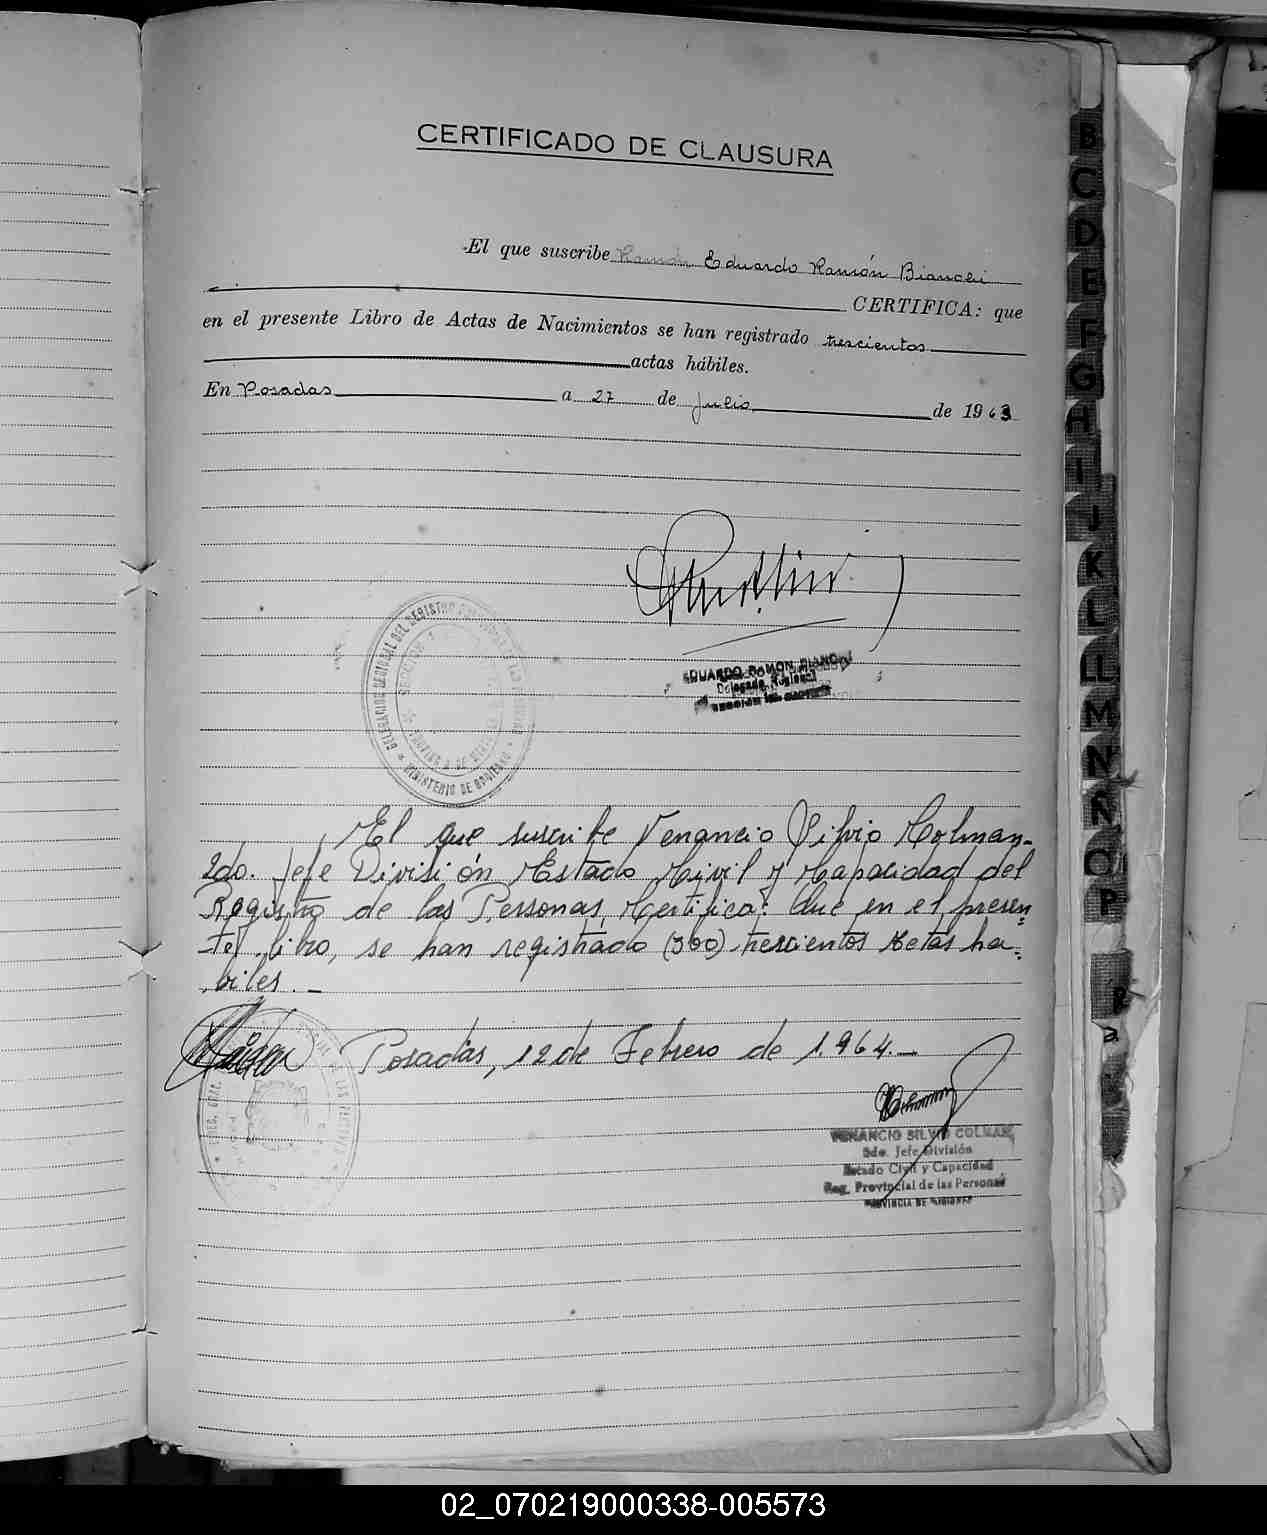 CERTIFICADO DE CLAUSURA
El que suscribe Ramón Eduardo Ramón Bianchi
CERTIFICA: que
en el presente Libro de Actas de Nacimientos se han registrado trescientos
actas hábiles.
En Posadas a 27 de Julio de 1963
EDUARDO RAMON BIANCHI
Delegado Regional
DELEGACION REGIONAL DEL REGISTRO
MINISTERIO DE GOBIERNO
El que suscribe Venancio Silvio Colman-
2do. Jefe División Estado Civil y Capacidad del
Registro de las Personas, Certifica: Que en el presen-
te libro, se han registrado (300) trescientos actas há-
biles.-
Posadas, 12 de Febrero de 1.964.-
VENANCIO SILVIO COLMAN
2do. Jefe División
Estado Civil y Capacidad
Reg. Provincial de las Personas
PROVINCIA DE MISIONES
B
C
D
E
F
G
H
I
J
K
L
LL
M
N
Ñ
O
P
02_070219000338-005573